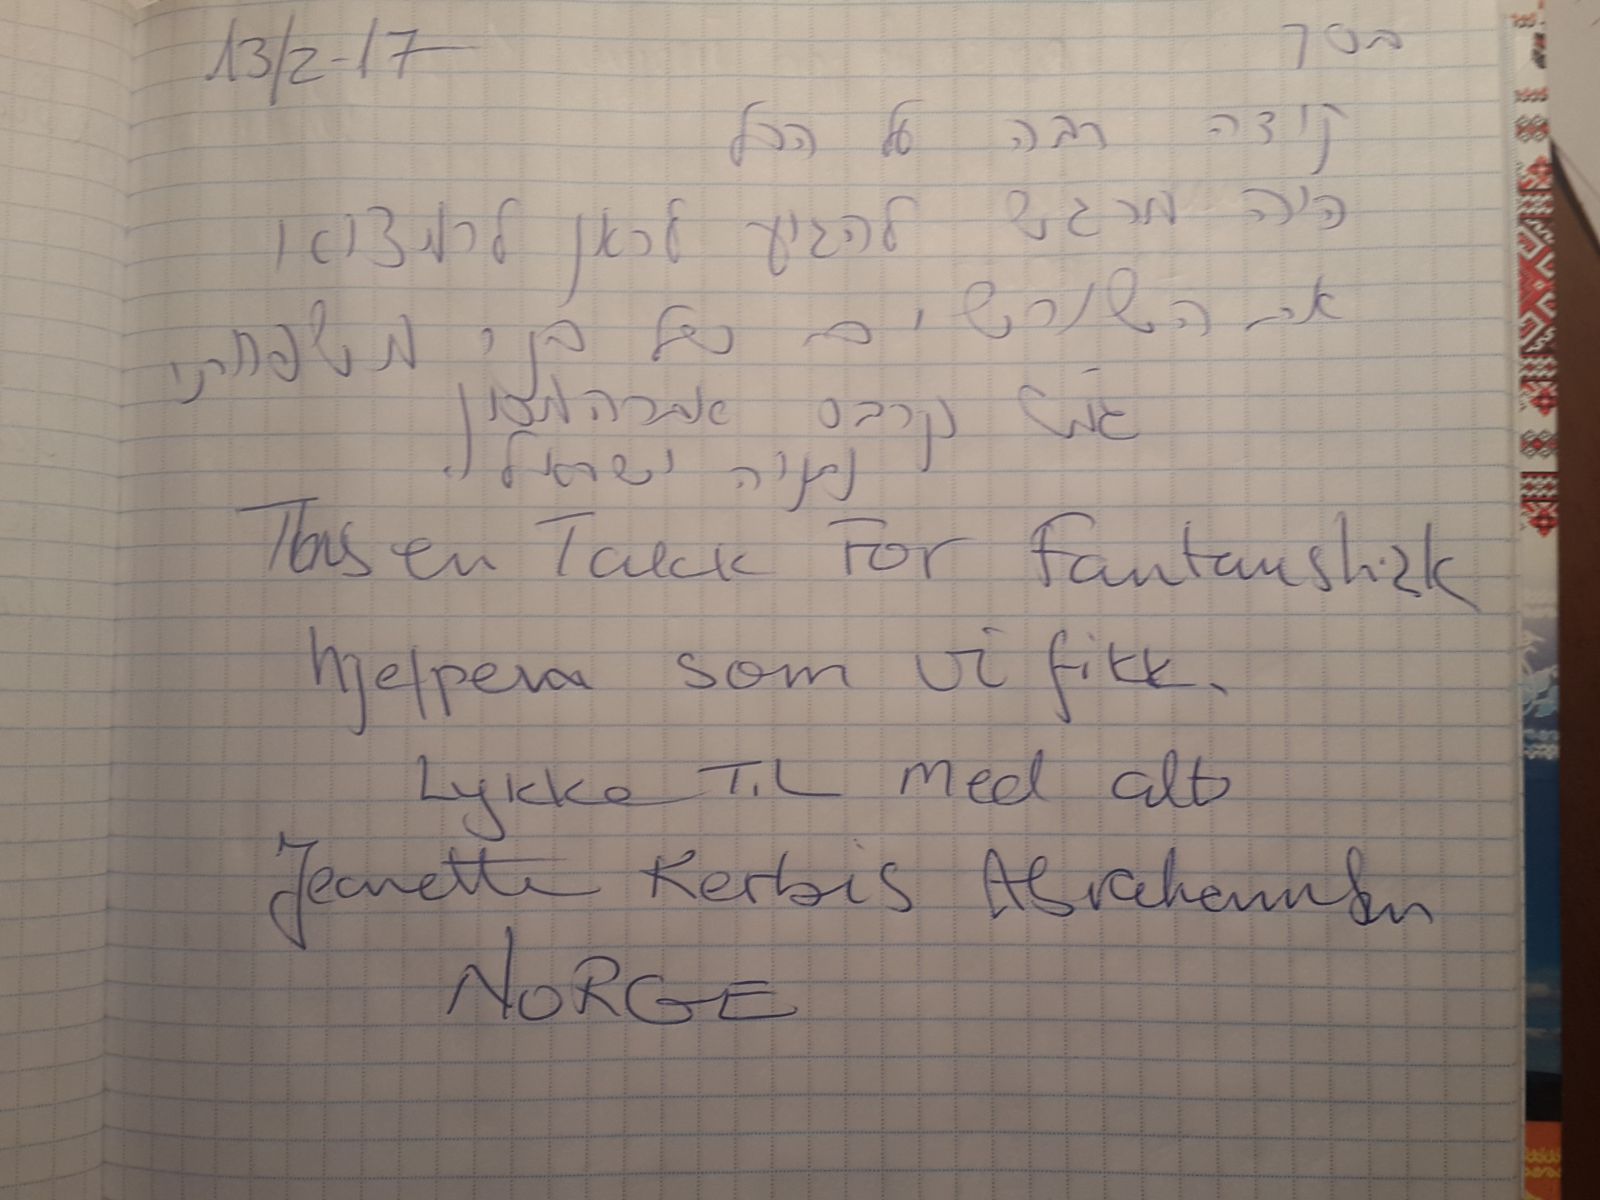 13/2-17
תודה רבה על הכל
היה מרגש להגיע לכאן למצוא
את השורשים של בני משפחתי
קרבס אברהמסון
נתניה ישראל.
Tusen Takk For Fantaustisk
hjelpen som vi fikk.
Lykke TiL med alt
Jeanette Kerbis Abrahamsen
NORGE